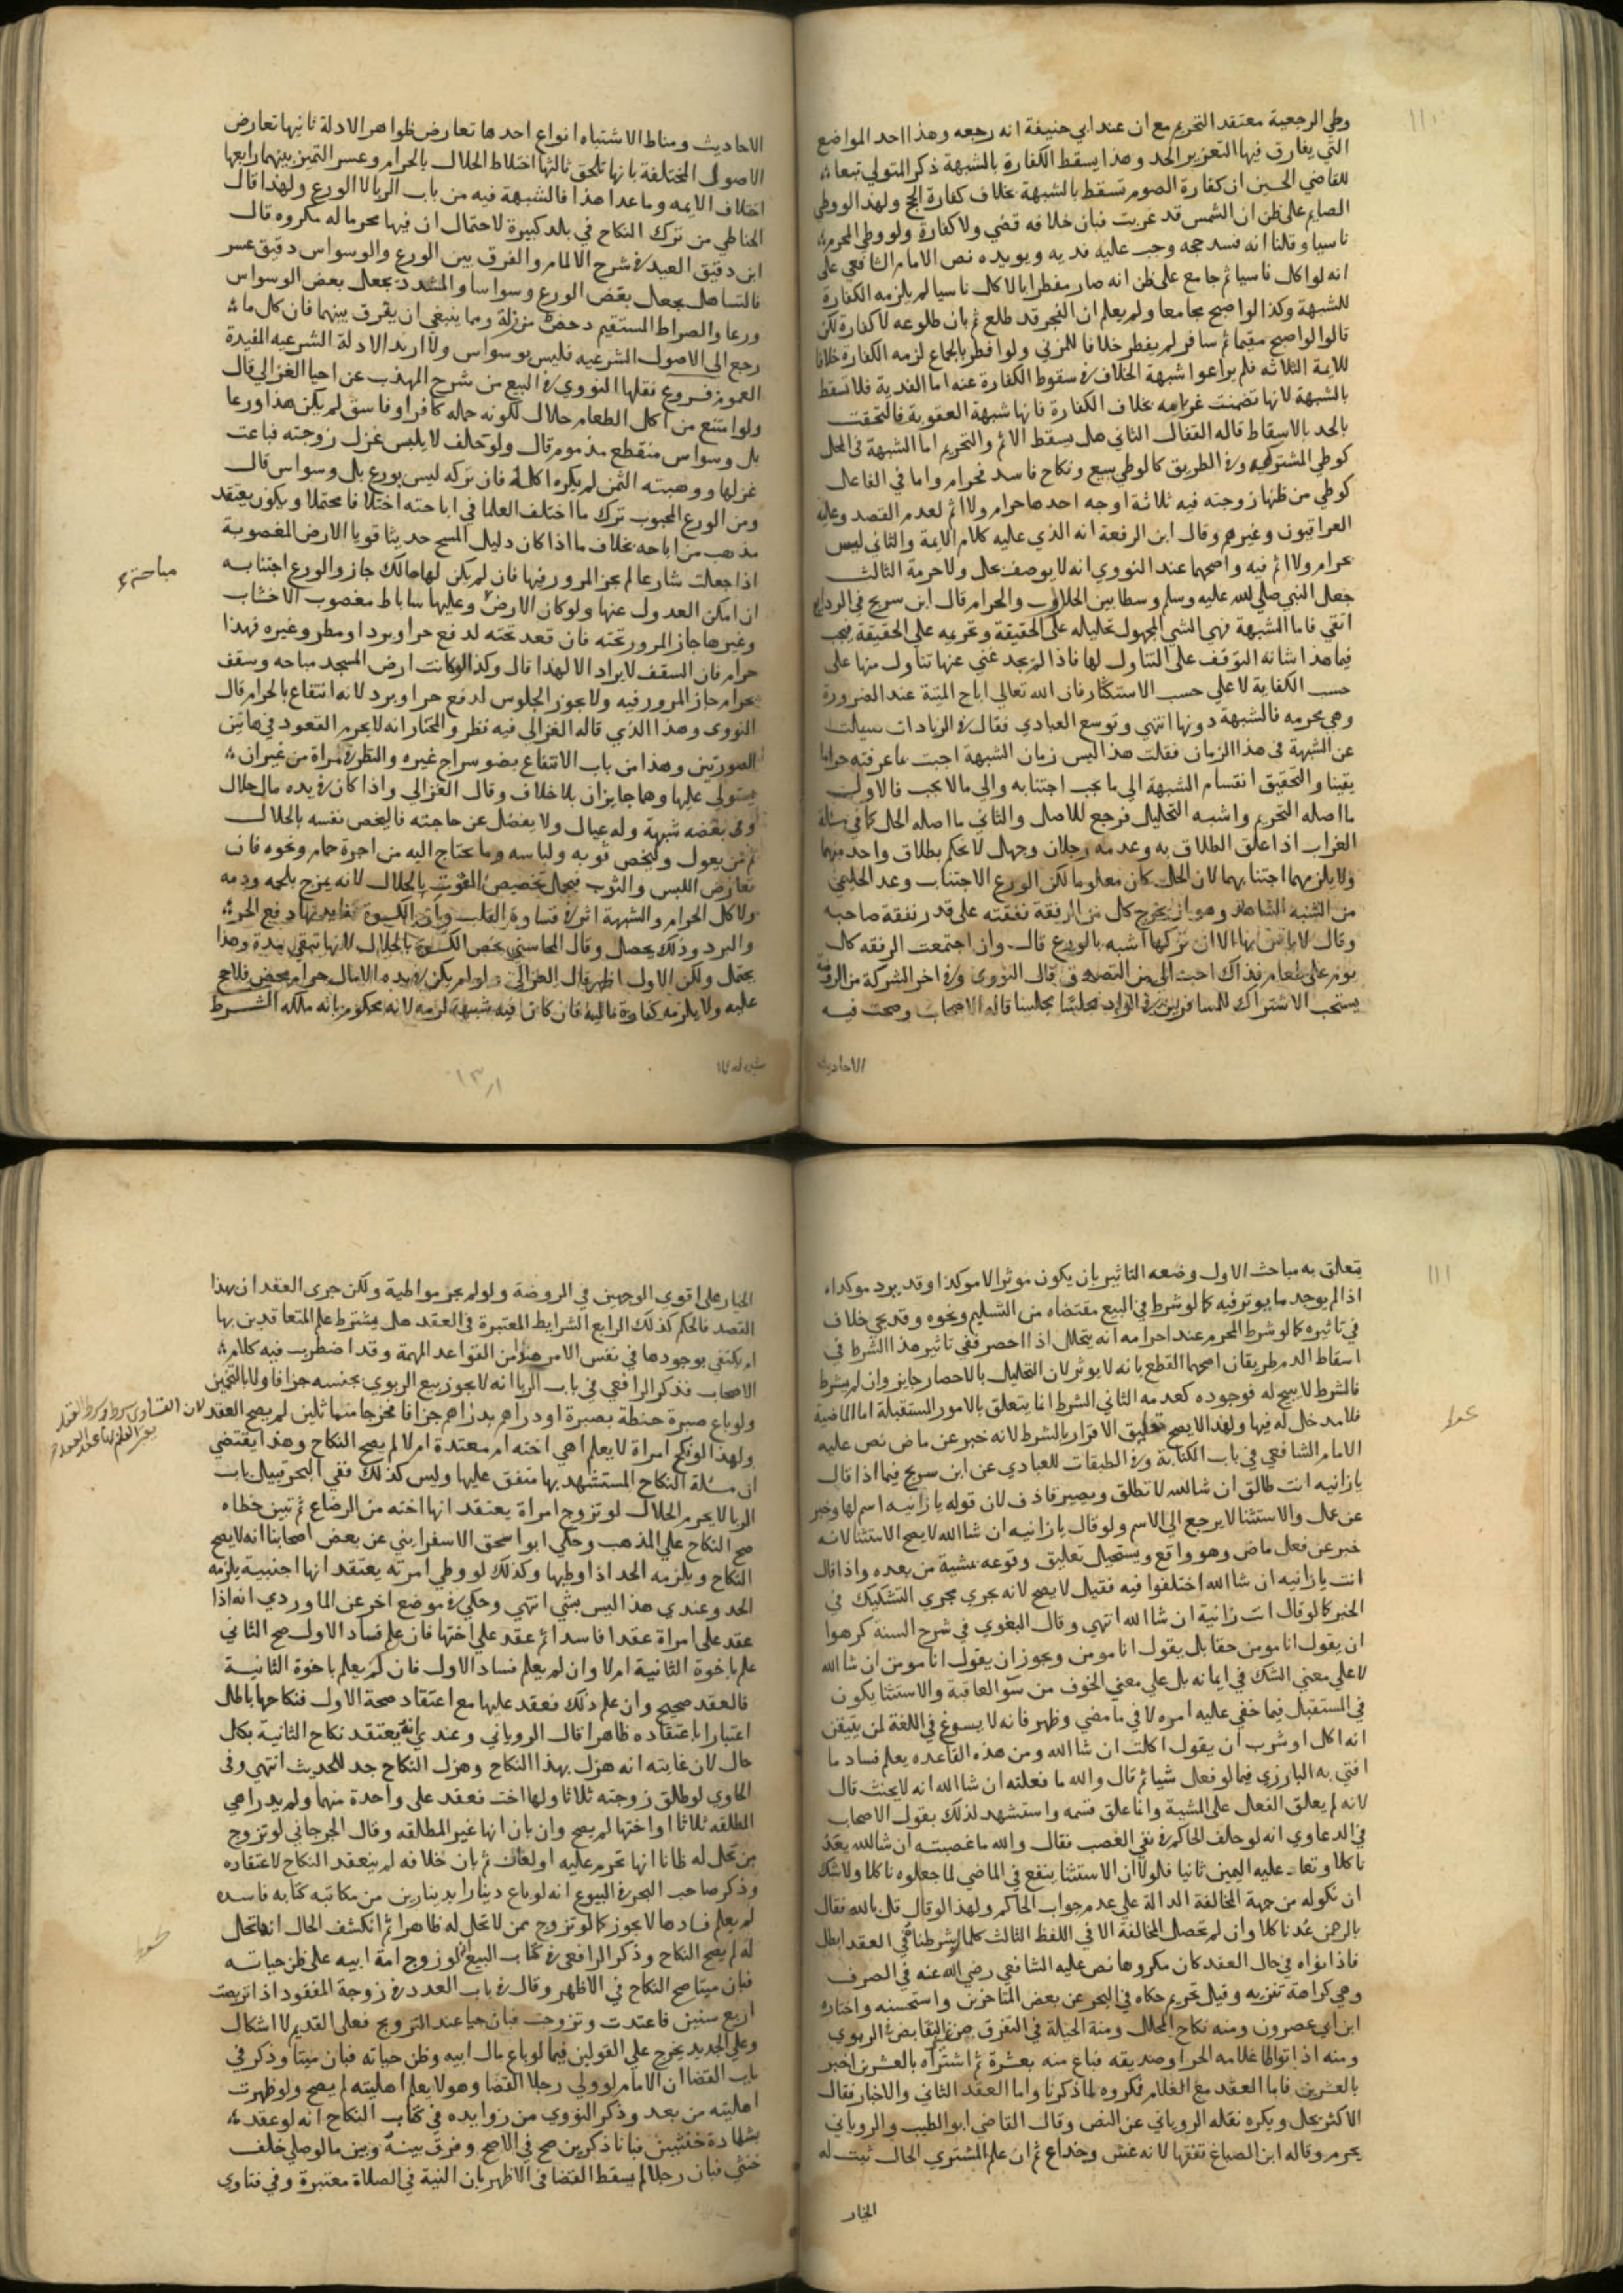 ١١٠
وطي الرجعية معتقد التحريم مع ان عند ابي حنيفة انه رجعه وهذا احد المواضع
التي يفارق فيها التعزير الحد وهذا يسقط الكفارة بالشبهة ذكر المتولي تبعا
للقاضي الحسين ان كفارة الصوم تسقط بالشبهة بخلاف كفارة الحج ولهذا لووطي
الصايم على ظن ان الشمس قد غربت فبان خلافه قضي ولا كفارة ولو وطي المحرم
ناسيا وقلنا انه فسد حجه وجب عليه فديه ويويده نص الامام الشافعي على
انه لو اكل ناسيا ثم جامع على ظن انه صار مفطرا بالاكل ناسيا لم يلزمه الكفارة
للشبهة وكذا لو اصبح مجامعا ولم يعلم ان الفجر قد طلع ثم بان طلوعه لا كفارة لكن
قالوا لو اصبح مقيما ثم سافر لم يفطر خلافا للمزني ولو افطر بالجماع لزمه الكفارة خلافا
للايمة الثلاثه فلم يراعوا شبهة الخلاف في سقوط الكفارة عنه اما الفدية فلا تسقط
بالشبهة لانها تضمنت غرامه بخلاف الكفارة فانها شبهة العقوبة فالتحقت
بالحد بالاسقاط قاله القفال الثاني هل يسقط الاثم والتحريم اما الشبهة في المحل
كوطي المشتركه وفي الطريق كالوطي ببيع ونكاح فاسد فحرام واما في الفاعل
كوطي من ظنها زوجته فيه ثلاثة اوجه احدها حرام ولا اثم لعدم القصد وعليه
العراقيون وغيرهم وقال ابن الرفعة انه الذي عليه كلام الايمة والثاني ليس
بحرام ولا اثم فيه واصحهما عند النووي انه لا يوصف بحل ولا حرمة الثالث
جعل النبي صلى الله عليه وسلم وسطا بين الحلال والحرام قال ابن سريج في الودايع
اتقي فاما المشبهة فهي الشي المجهول تحليله على الحقيقة وتحريمه على الحقيقة فيجب
فيما هذا شانه التوقف على التناول لها فاذا لم يجد غني عنها تناول منها على
حسب الكفاية لا علي حسب الاستكثار فان الله تعالي اباح الميتة عند الضرورة
وهي محرمه فالشبهة دونها انتهي وتوسع العبادي فقال في الزيادات سيلت
عن الشبهة في هذا الزمان فقلت هذا ليس زمان الشبهة اجتنب ما عرفته حراما
يقينا والتحقيق انقسام الشبهة الي ما يجب اجتنابه والي ما لا يجب فالاول
ما اصله التحريم واشبه التحليل فرجع للاصل والثاني ما اصله الحل كما في مسالة
الغراب اذا علق الطلاق به وعدمه رجلان وجهل لا نحكم بطلاق واحد منهما
ولا يلزمهما اجتنابهما لان الحل كان معلوما لكن الورع الاجتناب وعد الحليمي
من الشبه المناهدة وهو ان يخرج كل من الرفقة نفقته على قدر نفقة صاحبه
وقال لا باس بها الا ان تركها اشبه بالورع قال وان اجتمعت الرفقه كل
يوم على طعام فذاك احب الي من التصدق قال النووي وفي اخر الشركة من الروضة
يستحب الاشتراك للمسافرين في الزاد مجلسا مجلسا قاله الاصحاب وصحت فيه
الاحاديث
الاحاديث ومناط الاشتباه انواع احدها تعارض ظواهر الادلة ثانيها تعارض
الاصول المختلفة بانها تلحق ثالثها اختلاط الحلال بالحرام وعسر التميز بينهما رابعها
اختلاف الايمه وما عدا هذا فالشبهة فيه من باب الريا لا الورع ولهذا قال
الحناطي من ترك النكاح في بلد كبيرة لاحتمال ان فيها محرما له مكروه قال
ابن دقيق العيد في شرح الالمام والفرق بين الورع والوسواس دقيق عسر
فالتساهل يجعل بعض الورع وسواسا والمشدد يجعل بعض الوسواس
ورعا والصراط المستقيم دحض مزلة ومما ينبغي ان يفرق بينهما فان كل ما
رجع الي الاصول الشرعيه فليس بوسواس ولا اريد الادلة الشرعيه المفيدة
العموم فروع نقلها النووي في البيع من شرح المهذب عن احيا الغزالي قال
ولو امتنع من اكل الطعام حلال لكونه حمله كافر او فاسق لم يكن هذا ورعا
بل وسواس منقطع مذموم قال ولو حلف لا يلبس غزل زوجته فباعت
غزلها ووهبته الثمن لم يكره اكله فان تركه ليس بورع بل وسواس قال
ومن الورع المحبوب ترك ما اختلف العلما في اباحته اختلافا محتملا ويكون يعتقد
مذهب من اباحه بخلاف ما اذا كان دليل المسح حديثا قويا الارض المغصوبة
اذا جعلت شارعا لم يجز المرور فيها فان لم يكن لها مالك جاز والورع اجتنابه
ان امكن العدول عنها ولو كان الارض وعليها ساباط مغصوب الاخشاب
وغيرها جاز المرور تحته فان قعد تحته لدفع حر او برد او مطر وغيره فهذا
حرام فان السقف لا يراد الا لهذا قال وكذا لو كانت ارض المسجد مباحه وسقف
بحرام جاز المرور فيه ولا يجوز الجلوس لدفع حر او برد لانه انتفاع بالحرام قال
النووي وهذا الذي قاله الغزالي فيه نظر والمختار انه لا يحرم القعود في هاتين
الصورتين وهذا من باب الانتفاع بضو سراج غيره والنظر في مراة من غير ان
يستولي عليها وهما جايزان بلا خلاف وقال الغزالي واذا كان في يده مال حلال
وفي بعضه شبهة وله عيال ولا يفضل عن حاجته فاليخص نفسه بالحلال
ثم من يعول وليخص قوته ولباسه وما يحتاج اليه من اجرة حمام ونحوه فان
تعارض اللبس والثوب فيحمل تخصيص القوت بالحلال لانه يمزج بلحمه ودمه
ولاكل الحرام والشبهة اثر في قساوة القلب وبان الكسوة فقايدتها دفع الحر
والبرد وذلك يحصل وقال المحاسبي يخص الكسوة بالحلال لانها تبقي مدة وهذا
يحتمل ولكن الاول اظهر قال الغزالي ولو لم يكن في يده الا مال حرام محض فلا حج
عليه ولا يلزمه كفارة مالية فان كان فيه شبهة لزمه لانه محكوم بانه ملكه الشرط
١١١
يتعلق به مباحث الاول وضعه التاثير بان يكون موثرا لا موكدا وقد يرد موكداه
اذا لم يوجد ما يوتر فيه كما لو شرط في البيع مقتضاه من التسليم ونحوه وقد يجي خلاف
في تاثيره كما لو شرط المحرم عند احرامه انه يتحلل اذا احصر ففي تاثير هذا الشرط في
اسقاط الدم طريقان اصحهما القطع بانه لا يوثر لان التحليل بالاحصار جايز وان لم يشرط
فالشرط لا يبيح له فوجوده كعدمه الثاني الشرط انما يتعلق بالامور المستقبلة اما الماضية
فلا مدخل له فيها ولهذا لا يصح تعليق الاقرار بالشرط لانه خبر عن ماض نص عليه
الامام الشافعي في باب الكتابة وفي الطبقات للعبادي عن ابن سريج فيما اذا قال
يا زانيه انت طالق ان شا الله لا تطلق ويصير قاذف لان قوله يا زانيه اسم لها وخبر
عن عمل والاستثنا لا يرجع الي الاسم ولو قال يا زانيه ان شا الله لا يصح الاستثنا لانه
خبر عن فعل ماض وهو واقع ويستحيل تعليق وقوعه بمشية من بعده واذا قال
انت يا زانيه ان شا الله اختلفوا فيه فقيل لا يصح لانه يجري مجري التشكيك في
الخبر كما لو قال انت زانية ان شا الله انتهي وقال البغوي في شرح السنة كرهوا
ان يقول انا مومن حقا بل يقول انا مومن ويجوز ان يقول انا مومن ان شا الله
لا علي معني الشك في ايمانه بل علي معني الخوف من سو العاقبة والاستثنا يكون
في المستقبل فيما خفي عليه امره لا في ما مضي وظهر فانه لا يسوغ في اللغة لمن يتيقن
انه اكل او شرب ان يقول اكلت ان شا الله ومن هذه القاعده يعلم فساد ما
افتي به البارزي فيما لو فعل شيا ثم قال والله ما فعلته ان شا الله انه لا يحنث قال
لانه لم يعلق الفعل على المشية وانما علق قسمه واستشهد لذلك بقول الاصحاب
في الدعاوي انه لو حلف الحاكم في نفي الغصب فقال والله ما غصبته ان شا الله يعد
ناكلا وتعاد عليه اليمين ثانيا فلولا ان الاستثنا ينفع في الماضي لما جعلوه ناكلا ولا شك
ان نكوله من جهة المخالفة الدالة علي عدم جواب الحاكم ولهذا لو قال قل بالله فقال
بالرحمن عد ناكلا وان لم تحصل المخالفة الا في اللفظ الثالث كلما شرطناه في العقد ابطل
فاذا نواه في حال العقد كان مكروها نص عليه الشافعي رضي الله عنه في الصرف
وهي كراهة تنزيه وقيل تحريم حكاه في البحر عن بعض المتاخرين واستحسنه واختاره
ابن ابي عصرون ومنه نكاح المحلل ومنة الحيلة في التفرق من التقابض في الربوي
ومنه اذا تواطا غلامه الحر او صديقه فباع منه بعشرة ثم اشتراه بالعشرين اخبر
بالعشرين فاما العقد مع الغلام فكروه لما ذكرنا واما العقد الثاني والاخبار فقال
الاكثر يحل ويكره نقله الروياني عن النص وقال القاضي ابو الطيب والروياني
يحرم وقاله ابن الصباغ تفقها لانه غش وخداع ثم ان علم المشتري الحال ثبت له
الخيار
الخيار على اقوي الوجهين في الروضة ولو لم يجز مواطية ولكن جري العقد ان بهذا
القصد فالحكم كذلك الرابع الشرايط المعتبرة في العقد هل يشترط علم المتعاقدين بها
ام يكتفي بوجودها في نفس الامر هذا من القواعد المهمة وقد اضطرب فيه كلام
الاصحاب فذكر الرافعي في باب الربا انه لا يجوز بيع الربوي بجنسه جزافا ولا بالتخمين
ولو باع صبرة حنطة بصبرة او دراهم بدراهم جزافا فخرجا متماثلين لم يصح العقد
ولهذا لو نكح امراة لا يعلم اهي اخته ام معتدة ام لا لم يصح النكاح وهذا يقتضي
ان مسئلة النكاح المستشهد بها متفق عليها وليس كذلك ففي البحر قبيل باب
الربا لا يحرم الحلال لو تزوج امراة يعتقد انها اخته من الرضاع ثم تبين خطاه
صح النكاح علي المذهب وحكي ابو اسحق الاسفرايني عن بعض اصحابنا انه لا يصح
النكاح ويلزمه الحد اذا وطيها وكذلك لو وطي امرته يعتقد انها اجنبية يلزمه
الحد وعندي هذا ليس بشي انتهي وحكي في موضع اخر عن الماوردي انه اذا
عقد على امراة عقدا فاسدا ثم عقد علي اختها فان علم فساد الاول صح الثاني
علم باخوة الثانية ام لا وان لم يعلم فساد الاول فان لم يعلم باخوة الثانية
فالعقد صحيح وان علم ذلك فعقد عليها مع اعتقاد صحة الاول فنكاحها باطل
اعتبارا باعتقاده ظاهرا قال الروياني وعندي انه يعتقد نكاح الثانية بكل
حال لان غايته انه هزل بهذا النكاح وهزل النكاح جد للحديث انتهي وفي
الحاوي لو طلق زوجته ثلاثا ولها اخت فعقد على واحدة منهما ولم يدر اهي
المطلقه ثلاثا او اختها لم يصح وان بان انها غير المطلقه وقال الجرجاني لو تزوج
من تحل له ظانا انها تحرم عليه ثم بان خلافه لم ينعقد النكاح لاعتقاده
وذكر صاحب البحر في البيوع انه لو باع دينارا بدينارين من مكاتبه كتابه فاسده
لم يعلم فسادها لا يجوز كما لو تزوج بمن لا تحل له ظاهرا ثم انكشف الحال انها تحل
له لم يصح النكاح وذكر الرافعي في كتاب البيع انه لو زوج امة ابيه على ظن حياته
فبان ميتا صح النكاح في الاظهر وقال في باب العدد في زوجة المفقود اذا تربصت
اربع سنين فاعتدت وتزوجت فبان حيا عند التزويج فعلى القديم لا اشكال
وعلي الجديد يخرج علي القولين فيما لو باع مال ابيه وظن حياته فبان ميتا وذكر في
باب القضا ان الامام لو ولي رجلا القضا وهو لا يعلم اهليته لم يصح ولو ظهرت
اهليته من بعد وذكر النووي من زوايده في كتاب النكاح انه لو عقد
بشهادة خنثيين فبانا ذكرين صح في الاصح وفرق بينه وبين ما لو صلي خلف
خنثي فبان رجلا لم يسقط القضا في الاظهر بان النية في الصلاة معتبرة وفي فتاوي